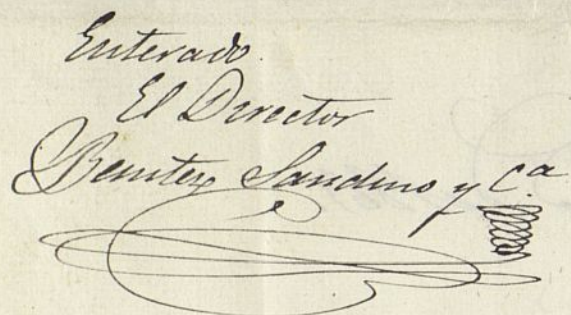 Enterado.
El Director
Benitez Sandino y C.a